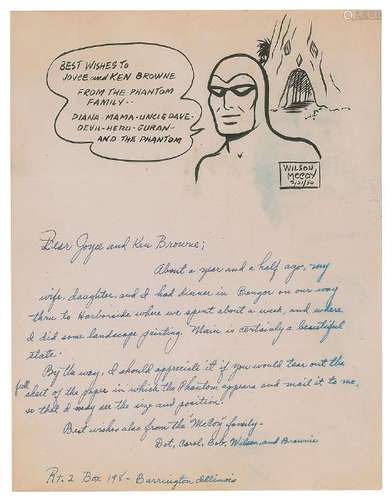 BEST WISHES TO
JOYCE and KEN BROWNE
FROM THE PHANTOM
FAMILY--
DIANA-MAMA-UNCLE DAVE-
DEVIL-HERO-GURAN-
AND THE PHANTOM
WILSON
McCOY
Dear Joyce and Ken Browne;
About a year and a half ago, my
wife, daughter, and I had dinner in Bangor on our way
thru to Harborside where we spent about a week, and where
I did some landscape painting. Main is certainly a beautiful
state.
By the way, I should appreciate it if you would tear out the
full sheet of the paper in which the Phantom appears and mail it to me,
so that I may see the size and position.
Best wishes also from the "McCoy family-
Dot, Carol, Bob, Wilson, and Brownie
Rt. 2 Box 198 - Barrington Illinois